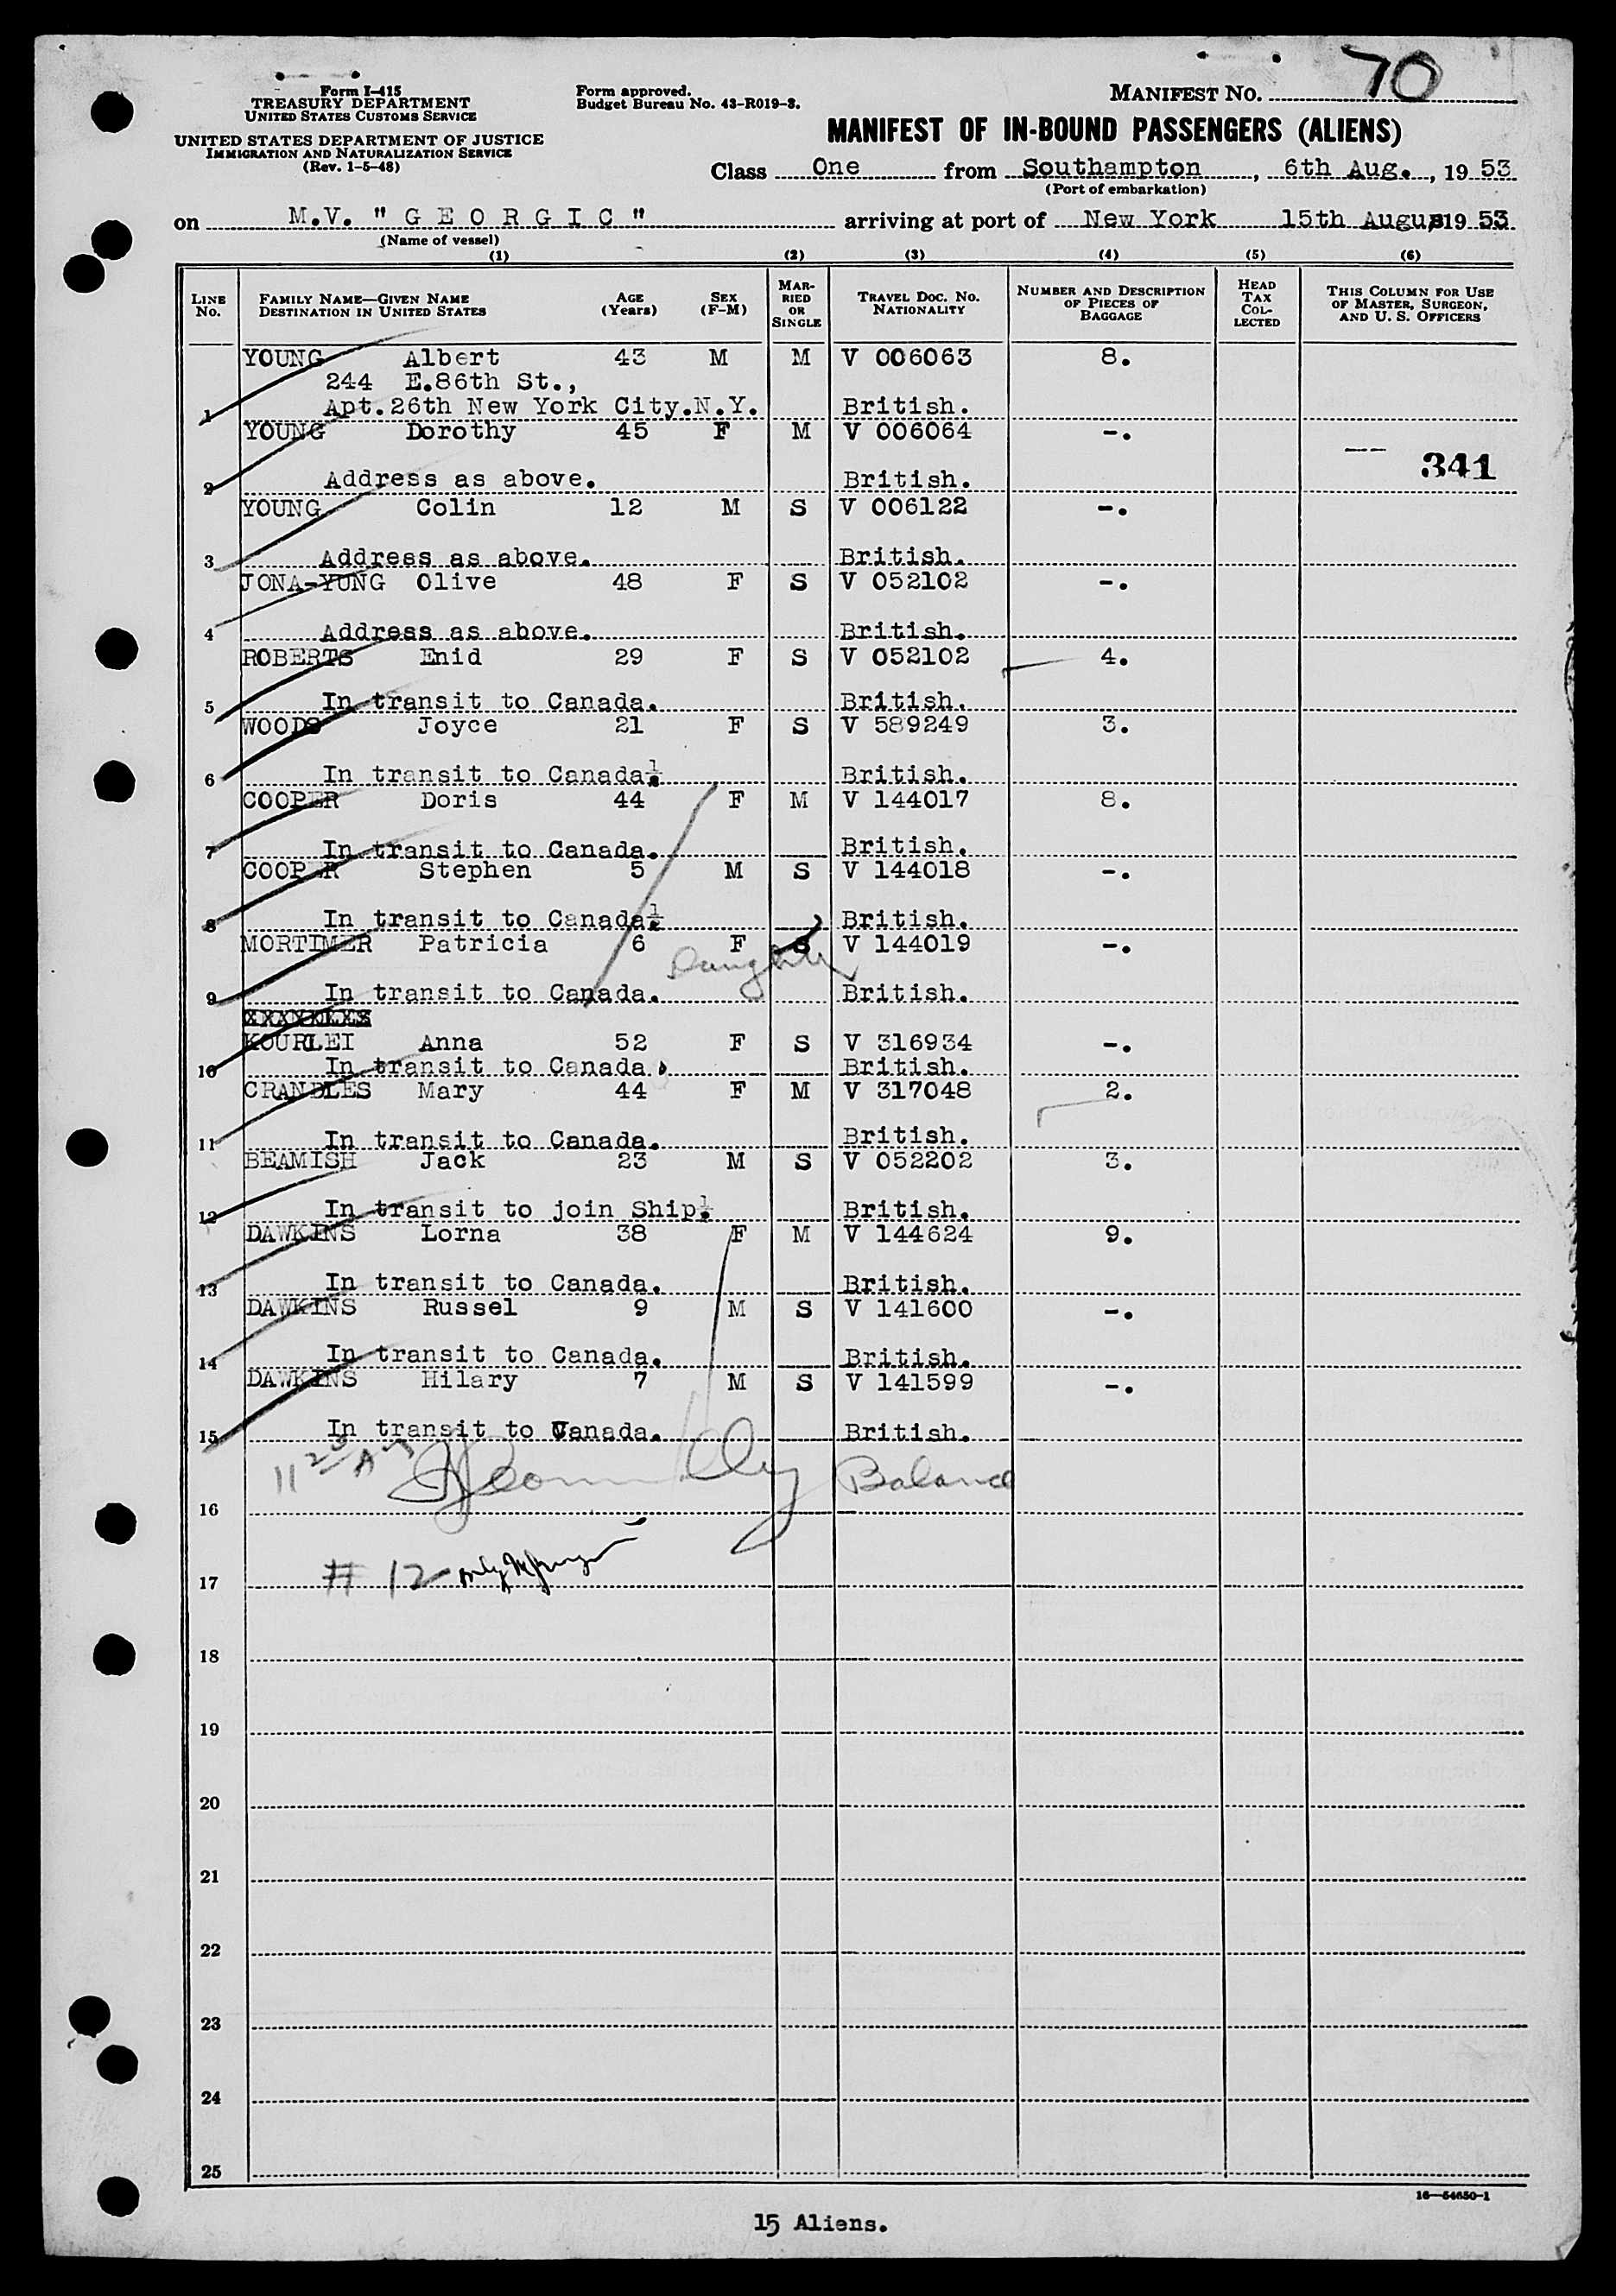 70
Form I-415
TREASURY DEPARTMENT
UNITED STATES CUSTOMS SERVICE
UNITED STATES DEPARTMENT OF JUSTICE
IMMIGRATION AND NATURALIZATION SERVICE
(Rev. 1-5-48)
Form approved.
Budget Bureau No. 43-R019-3.
MANIFEST NO.
MANIFEST OF IN-BOUND PASSENGERS (ALIENS)
Class One from Southampton, 6th Aug., 1953
(Port of embarkation)
on M.V. "GEORGIC" arriving at port of New York 15th Augus, 1953
(Name of vessel)
(1) (2) (3) (4) (5) (6)
LINE NO. FAMILY NAME—GIVEN NAME DESTINATION IN UNITED STATES AGE (Years) SEX (F-M) MARRIED OR SINGLE TRAVEL DOC. NO. NATIONALITY NUMBER AND DESCRIPTION OF PIECES OF BAGGAGE HEAD TAX COLLECTED THIS COLUMN FOR USE OF MASTER, SURGEON, AND U. S. OFFICERS
YOUNG Albert 43 M M V 006063 8.
244 E.86th St.,
1 Apt.26th New York City.N.Y. British.
YOUNG Dorothy 45 F M V 006064 -.
341
2 Address as above. British.
YOUNG Colin 12 M S V 006122 -.
3 Address as above. British.
JONA-YUNG Olive 48 F S V 052102 -.
4 Address as above. British.
ROBERTS Enid 29 F S V 052102 4.
5 In transit to Canada. British.
WOODS Joyce 21 F S V 589249 3.
6 In transit to Canada. British.
COOPER Doris 44 F M V 144017 8.
7 In transit to Canada. British.
COOPER Stephen 5 M S V 144018 -.
8 In transit to Canada. British.
MORTIMER Patricia 6 F S V 144019 -.
Daughter
9 In transit to Canada. British.
KOURLEI Anna 52 F S V 316934 -.
10 In transit to Canada. British.
CRANDLES Mary 44 F M V 317048 2.
11 In transit to Canada. British.
BEAMISH Jack 23 M S V 052202 3.
12 In transit to join Ship. British.
DAWKINS Lorna 38 F M V 144624 9.
13 In transit to Canada. British.
DAWKINS Russel 9 M S V 141600 -.
14 In transit to Canada. British.
DAWKINS Hilary 7 M S V 141599 -.
15 In transit to Canada. British.
Balance
16
# 12 only
17
18
19
20
21
22
23
24
25
16—54650-1
15 Aliens.